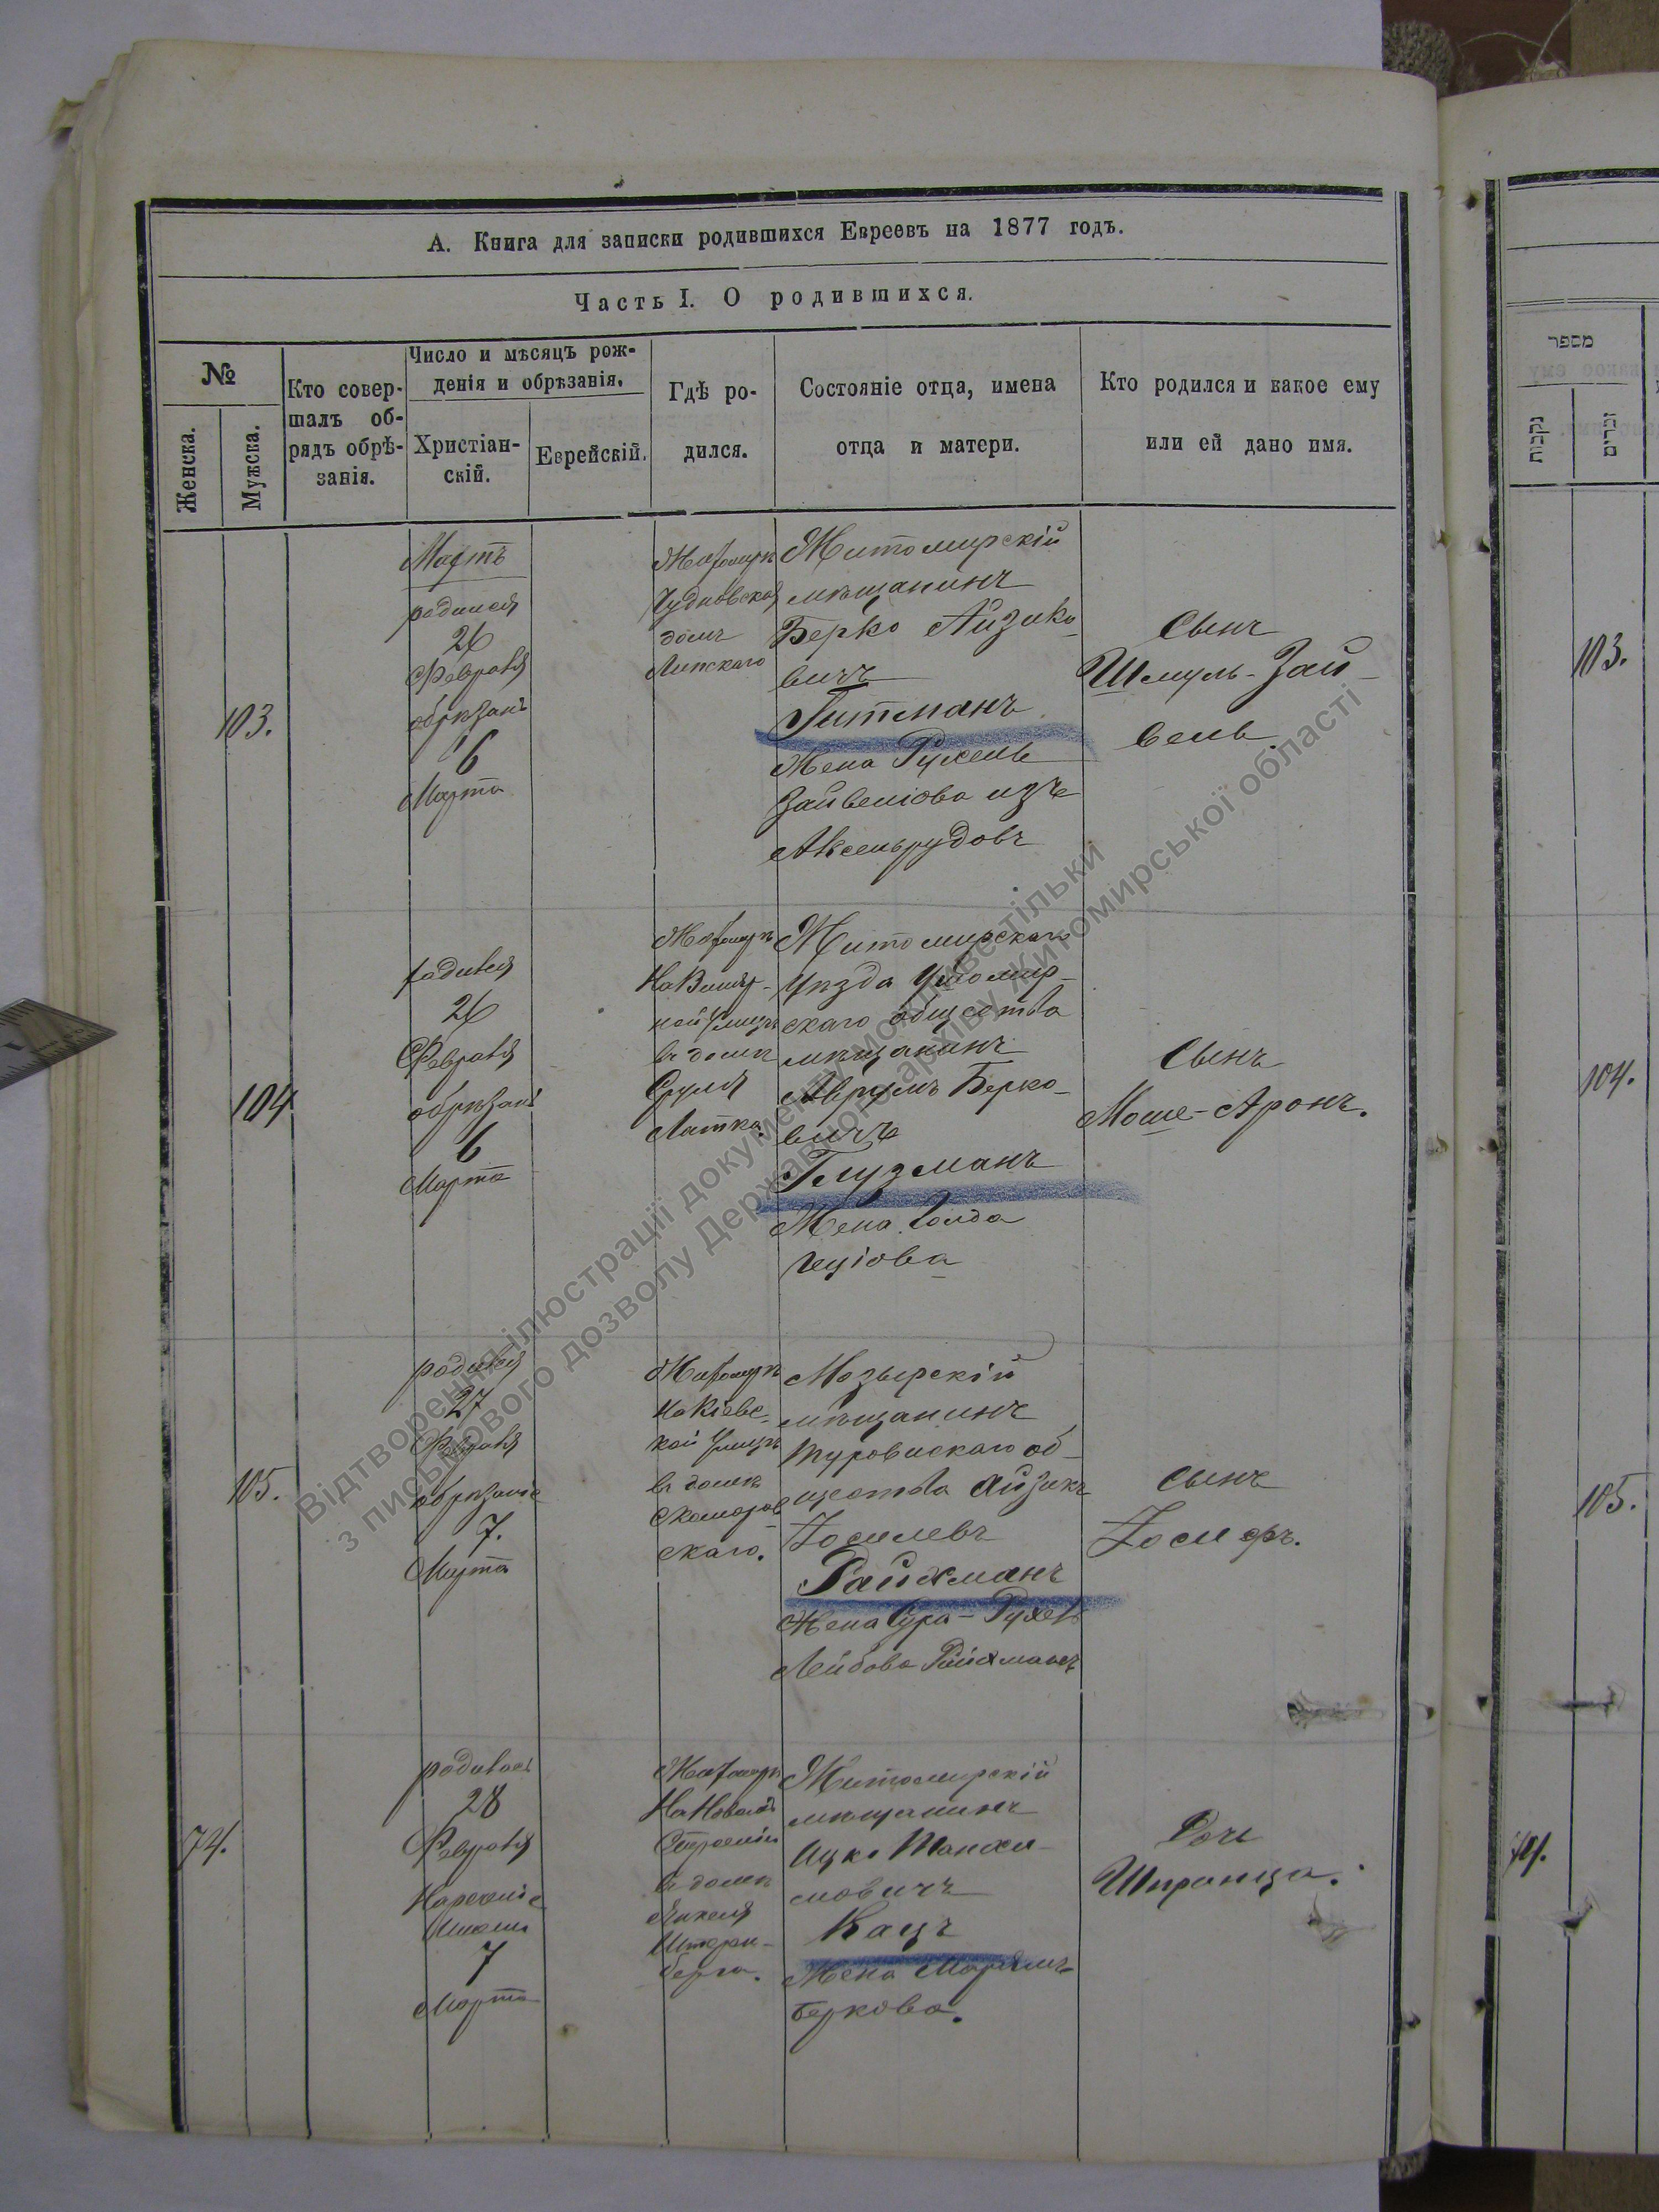 А. Книга для записки родившихся Евреевъ на 1877 годъ.
Часть I. О родившихся.
№
Женска.
Мужска.
Кто совер-
шалъ об-
рядъ обрѣ-
занія.
Число и мѣсяцъ рож-
денія и обрѣзанія.
Христіан-
скій.
Еврейскій.
Гдѣ ро-
дился.
Состояніе отца, имена
отца и матери.
Кто родился и какое ему
или ей дано имя.
103.
Мартъ
родился
26
Февраля
обрѣзанъ
6
Марта
Житомиръ
Чудновская
домъ
Липскаго
Житомирскій
мѣщанинъ
Берко Айзико-
вичъ
Гитманъ
Жена Рухель
Зайвелюва изъ
Аксельрудовъ
Сынъ
Шмуль-Зай-
вель
104
родился
26
Февраля
обрѣзанъ
6
Марта
Житомиръ
ной улицѣ
въ домѣ
Сруля
Житомирскаго
уѣзда Ушомир-
скаго общества
мѣщанинъ
Аврумъ Берко-
вичъ
Глузманъ
Жена Голда
Сынъ
Моше-Аронъ.
105.
родился
27
Февраля
обрѣзаніе
7.
Марта
Житомиръ
на Кіевс-
кой улицѣ
въ домѣ
Скоморов-
скаго.
Мозырскій
мѣщанинъ
Туровскаго об-
щества Айзикъ
Іоселевъ
Райхманъ
Жена Сура-Рухель
Лейбова Райхманъ
Сынъ
Іосифъ.
74.
родилась
28
Февраля
Нареченіе
Имени
7
Марта
Житомиръ
Строеніи
въ домѣ
Янкеля
берга.
Житомирскій
мѣщанинъ
Ицко Танхи-
мовичъ
Кацъ
Жена Марьямъ
Беркова.
Дочь
Шпринца.
מספר
נקבות
זכרים
103.
104.
105.
74.
Відтворення-ілюстрації документу можливе тільки
з письмового дозволу Державного архіву Житомирської області